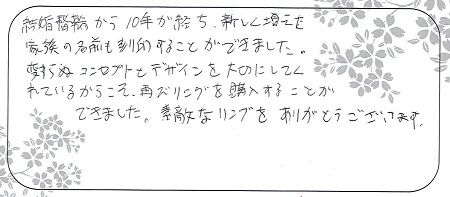 結婚指輪から10年が経ち、新しく増えた
家族の名前も刻印することができました。
変わらぬコンセプトとデザインを大切にしてく
れているからこそ、再びリングを購入することが
できました。素敵なリングを ありがとうございます。